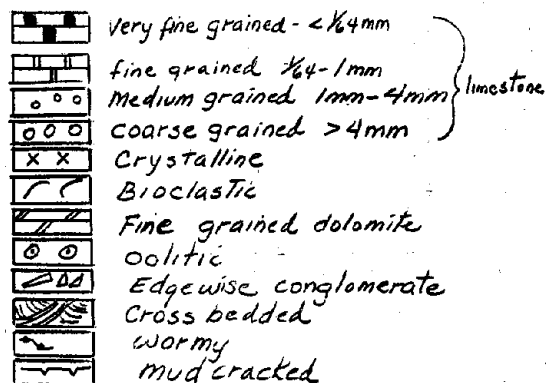 Very fine grained - < 1/64mm
fine grained 1/64-1mm
Medium grained 1mm-4mm
limestone
coarse grained >4mm
Crystalline
Bioclastic
Fine grained dolomite
oolitic
Edgewise conglomerate
Cross bedded
wormy
mud cracked